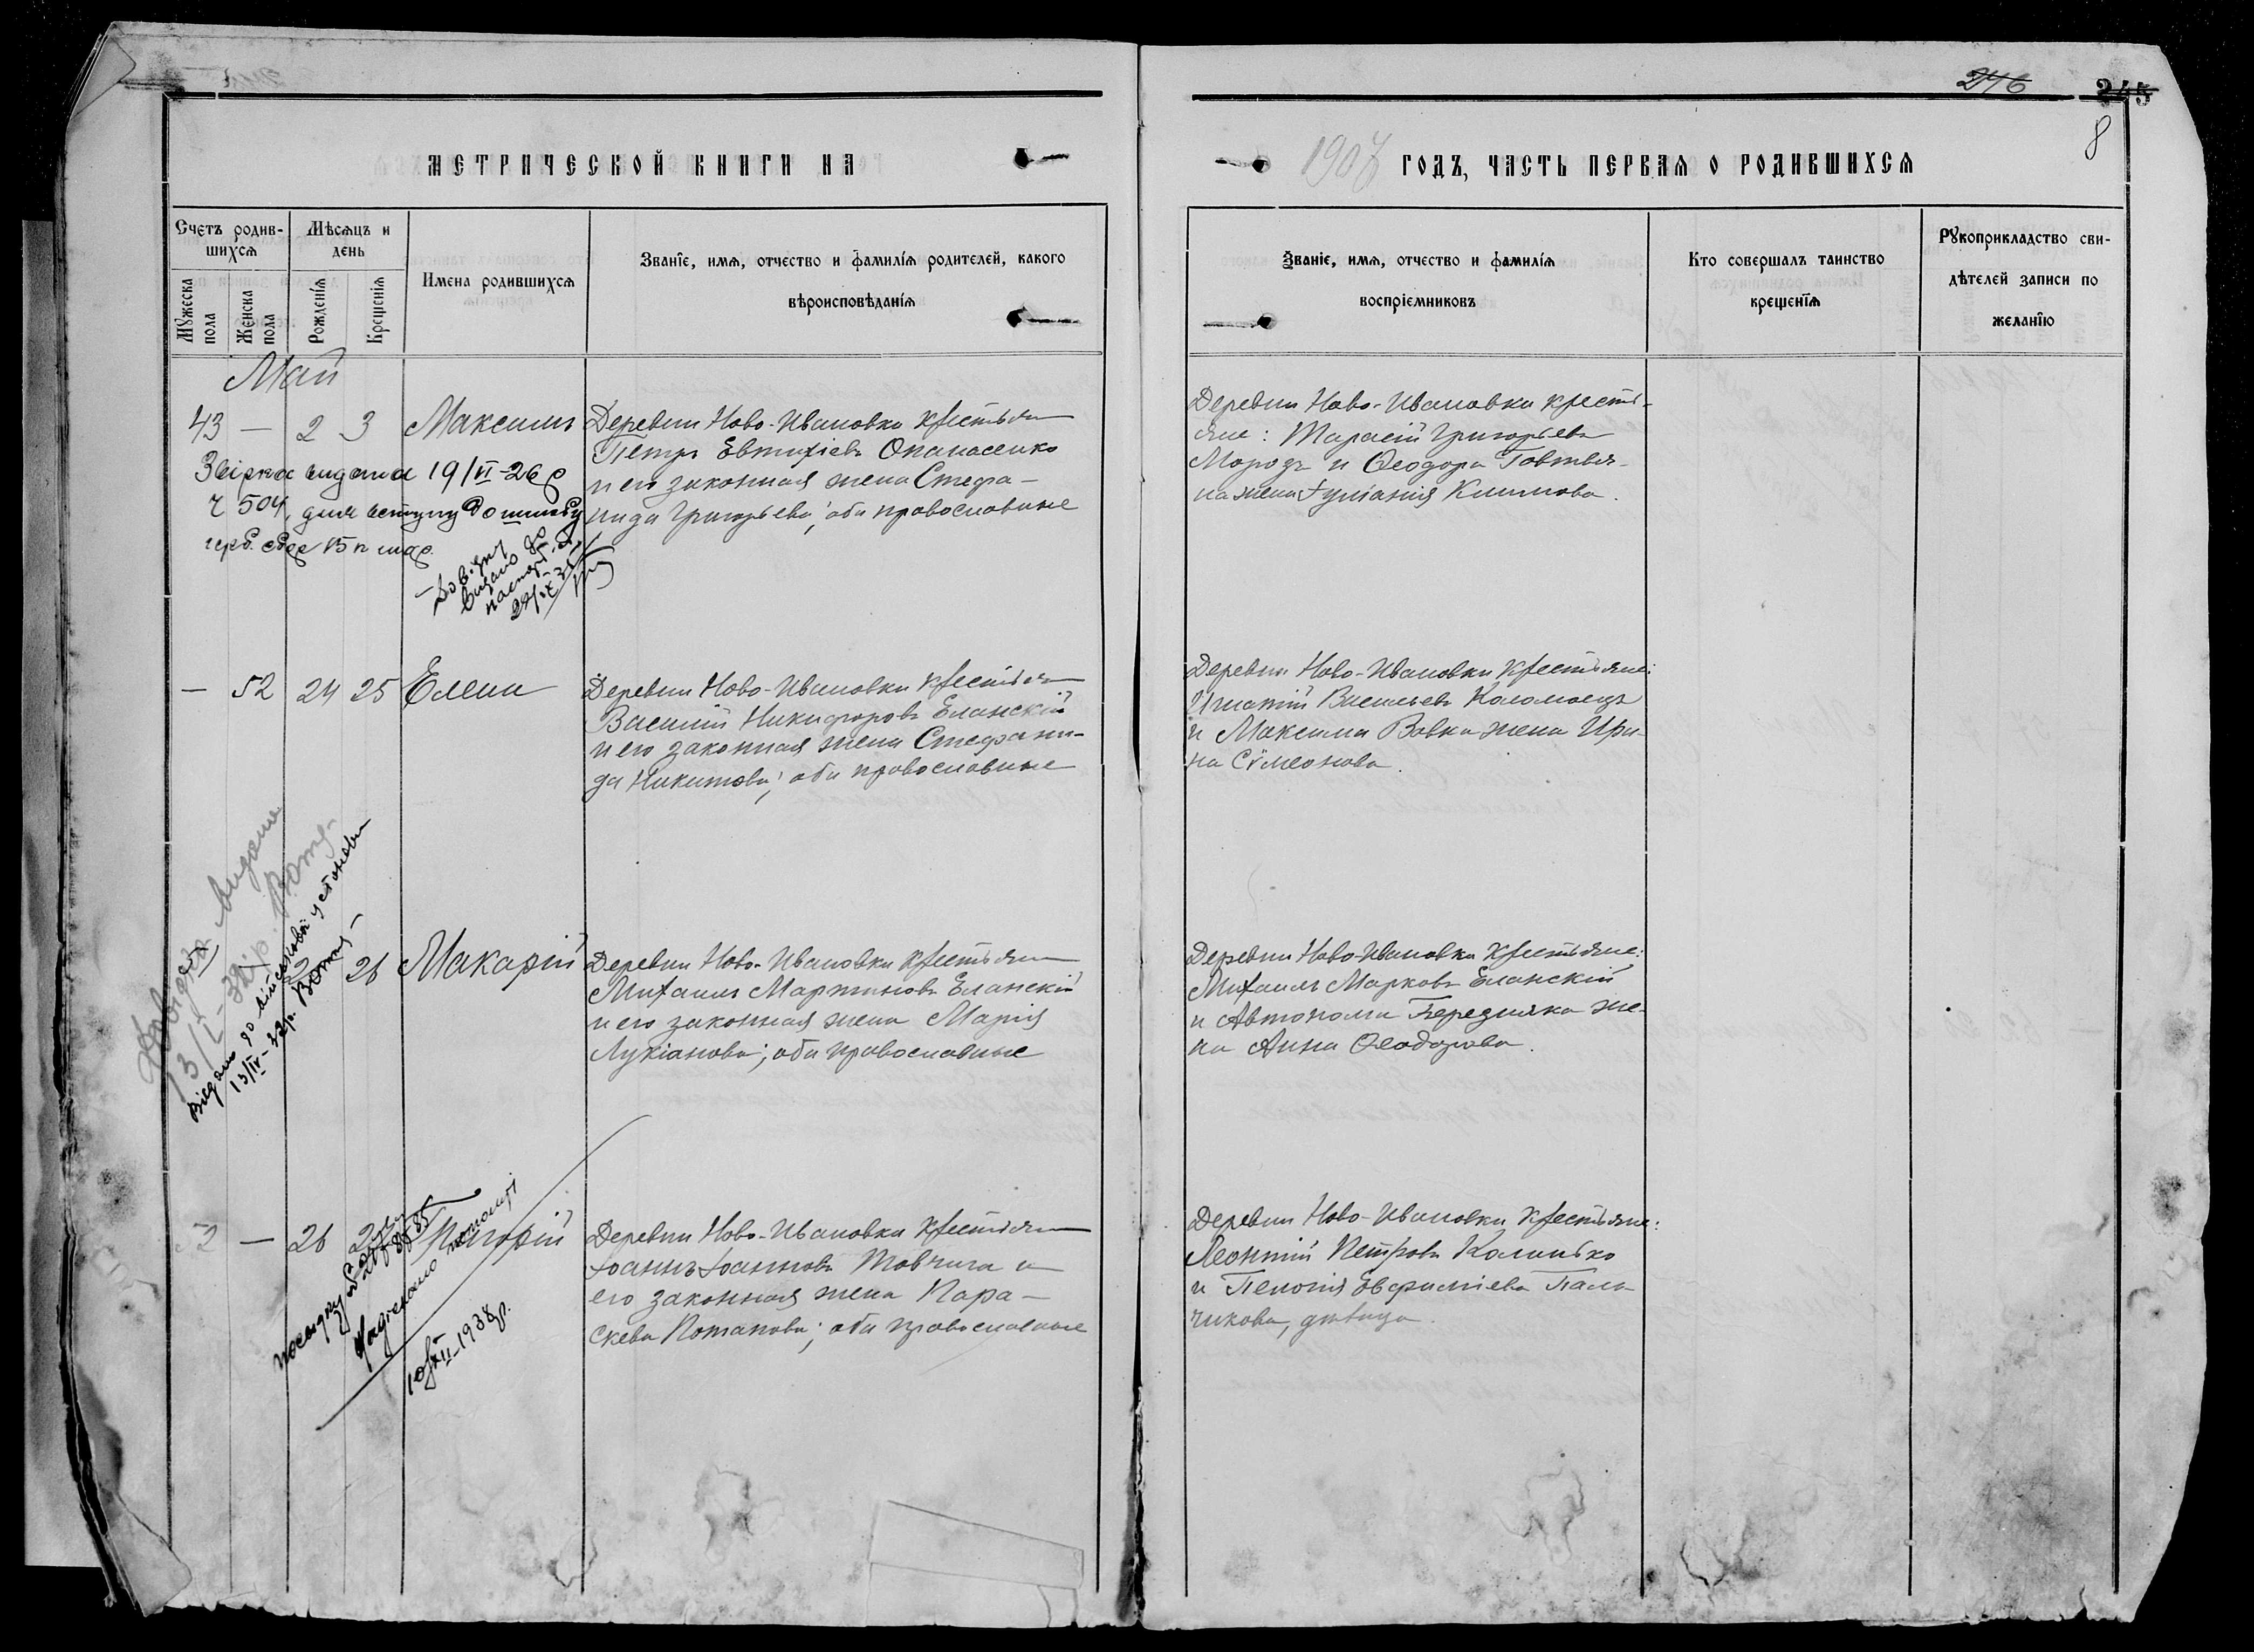 246 245
8
МЕТРИЧЕСКОЙ КНИГИ НА
1907 ГОДЪ, ЧАСТЬ ПЕРВАЯ О РОДИВШИХСЯ
Счетъ родив-
шихся
Мѣсяцъ и
день
Мужеска
пола
Женска
пола
Рожденія
Крещенія
Имена родившихся
Званіе, имя, отчество и фамилія родителей, какого
вѣроисповѣданія
Званіе, имя, отчество и фамилія
воспріемниковъ
Кто совершалъ таинство
крещенія
Рукоприкладство сви-
дѣтелей записи по
желанію
Май
43 — 2 3 Максимъ
Деревни Ново-Ивановки крестьян
Петръ Евтихіевъ Опанасенко
и его законная жена Стефа-
нида Григорьева; оба православные
Деревни Ново-Ивановки кресть-
яне: Тарасій Григорьевъ
Морозъ и Ѳеодора Говтвя-
на жена Іуліанія Климова.
Звірка видана 19/VI-26 р
Ч 504, для вступу до шлюбу
видано
— 52 24 25 Елена
Деревни Ново-Ивановки крестьян
Василій Никифоровъ Еланскій
и его законная жена Стефани-
да Никитова; оба православные
Деревни Ново-Ивановки крестьяне:
Игнатій Васильевъ Коломоецъ
и Максима Вовка жена Ири-
на Сѵмеонова.
Довідка видана
13/I-32 р.
Видано до військової установи
13/IV-32р.
26 Макарій
Деревни Ново-Ивановки крестьян
Михаилъ Мартиновъ Еланскій
и его законная жена Марія
Лукіанова; оба православные
Деревни Ново-Ивановки крестьяне:
Михаилъ Марковъ Еланскій
и Автонома Бередняка же-
на Анна Ѳеодорова.
— 26 27
Деревни Ново-Ивановки крестьян
Іоаннъ Іоанновъ Товчига и
его законная жена Пара-
скева Потапова; оба православные
Деревни Ново-Ивановки крестьяне:
Леонтій Петровъ Калинько
и Пелагія Евфиміева Паль-
чикова, дѣвица.
Надіслано
10/XII-1938р.